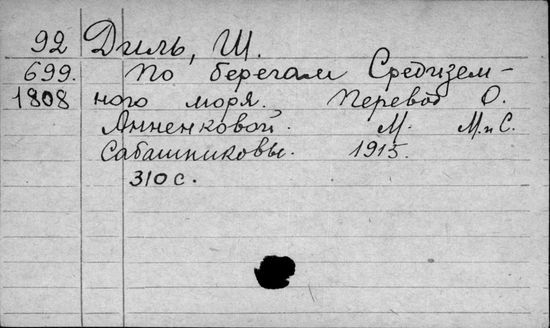 92 Диль, Ш.
699. По берегам Средизем-
1808 ного моря. Перевод О.
Анненковой. М. М. и С.
Сабашниковы. 1915.
310 с.